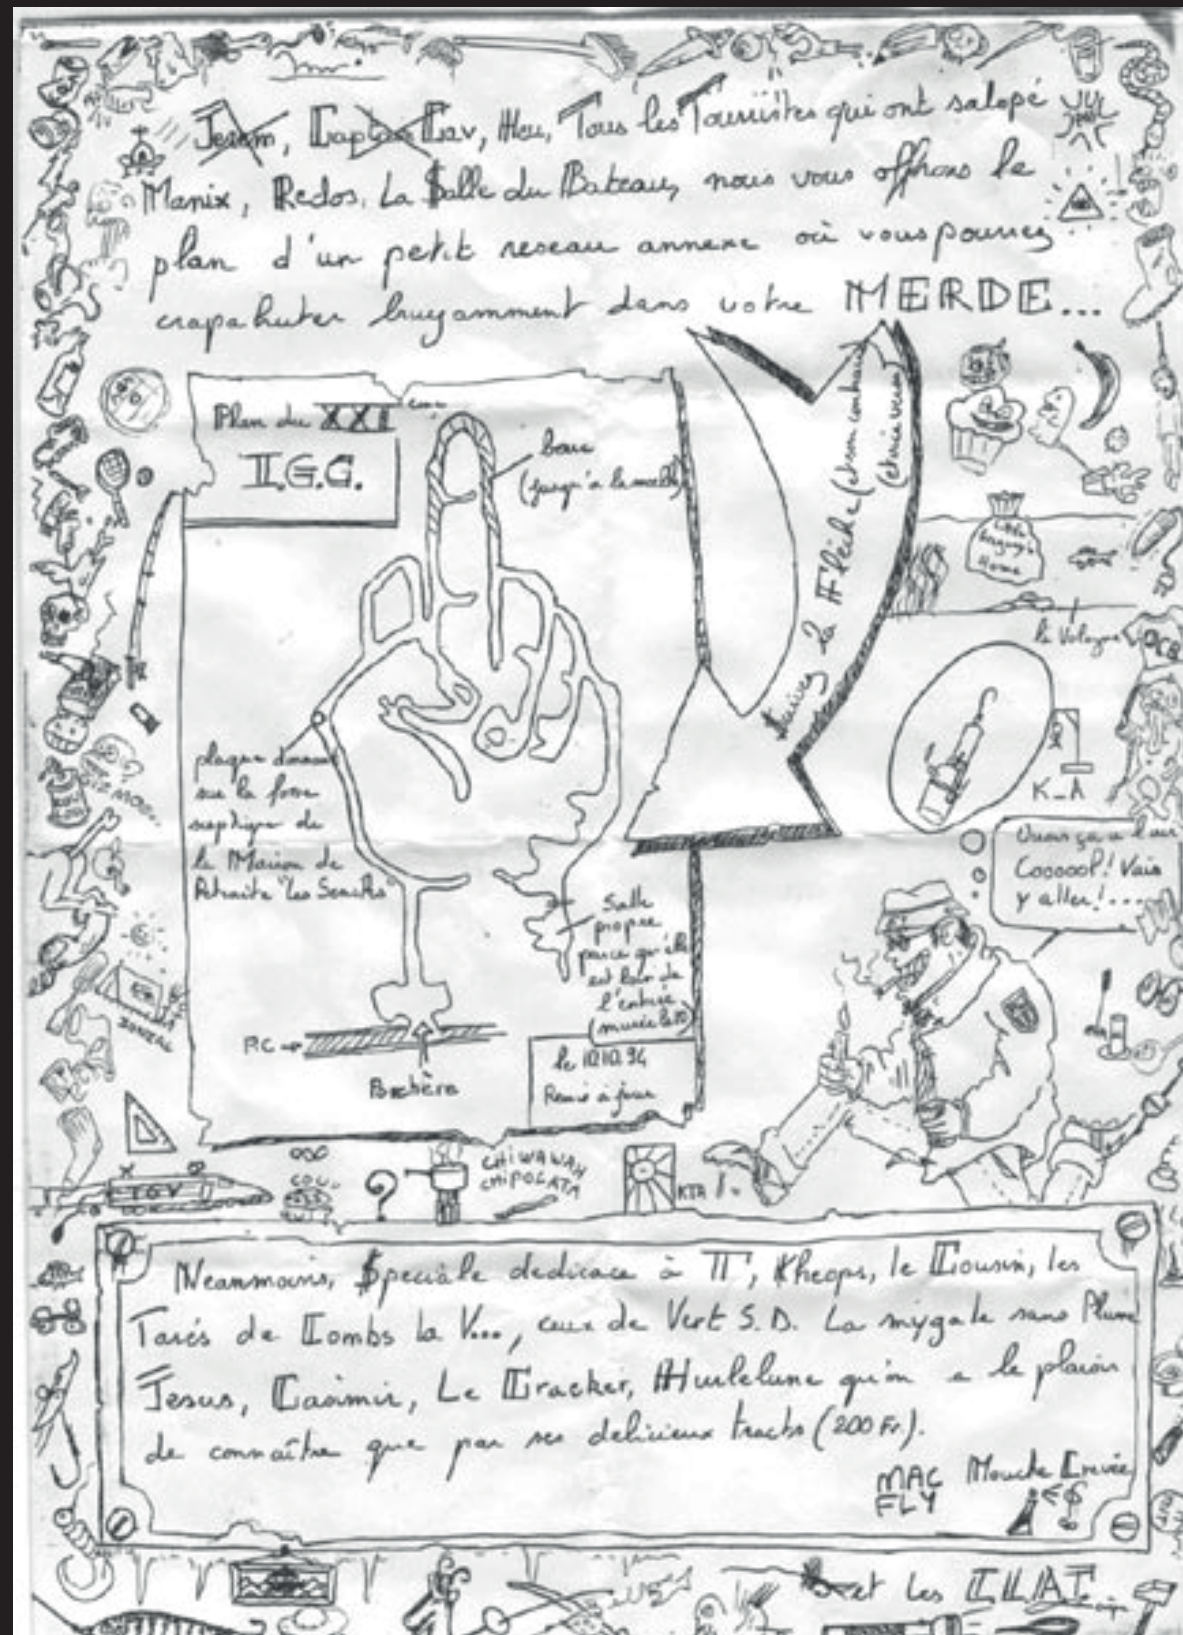 Jerem, Captain Cav, Heu, Tous les Touriistes qui ont salopé
Manix, Redos, La Salle du Bateau, nous vous offrons le
plan d'un petit reseau annexe où vous pourrez
crapahuter bruyamment dans votre MERDE...
Plan du XXI
I.G.C.
boue
(jusqu'à la moelle)
Suivez la Flèche
Little
Gregory's
Home
la Vologne
plaque donnant
sur la fosse
septique de
la Maison de
Retraite "Les Senecks"
Salle
propre
parce qu'elle
est loin de
l'entrée
P.C
Bachère
le 10.10.94
Remis à jour
K_A
Ouais ça a l'air
Coooool! Vais
y aller!....
GIZMO
OCB
TGV
?
CHIWAWAH
CHIPOLATA
KTA
Neanmoins, Speciale dedicace à TT, Kheops, le Cousin, les
Tarés de Combs la V..., ceux de Vert S.D. La mygale sans Plume
Jesus, Casimir, Le Cracker, Hurlelune qu'on a le plaisir
de connaître que par ses delicieux tracts (200 Fr.).
MAC
FLY
Mouche Crevée
et les CLAT